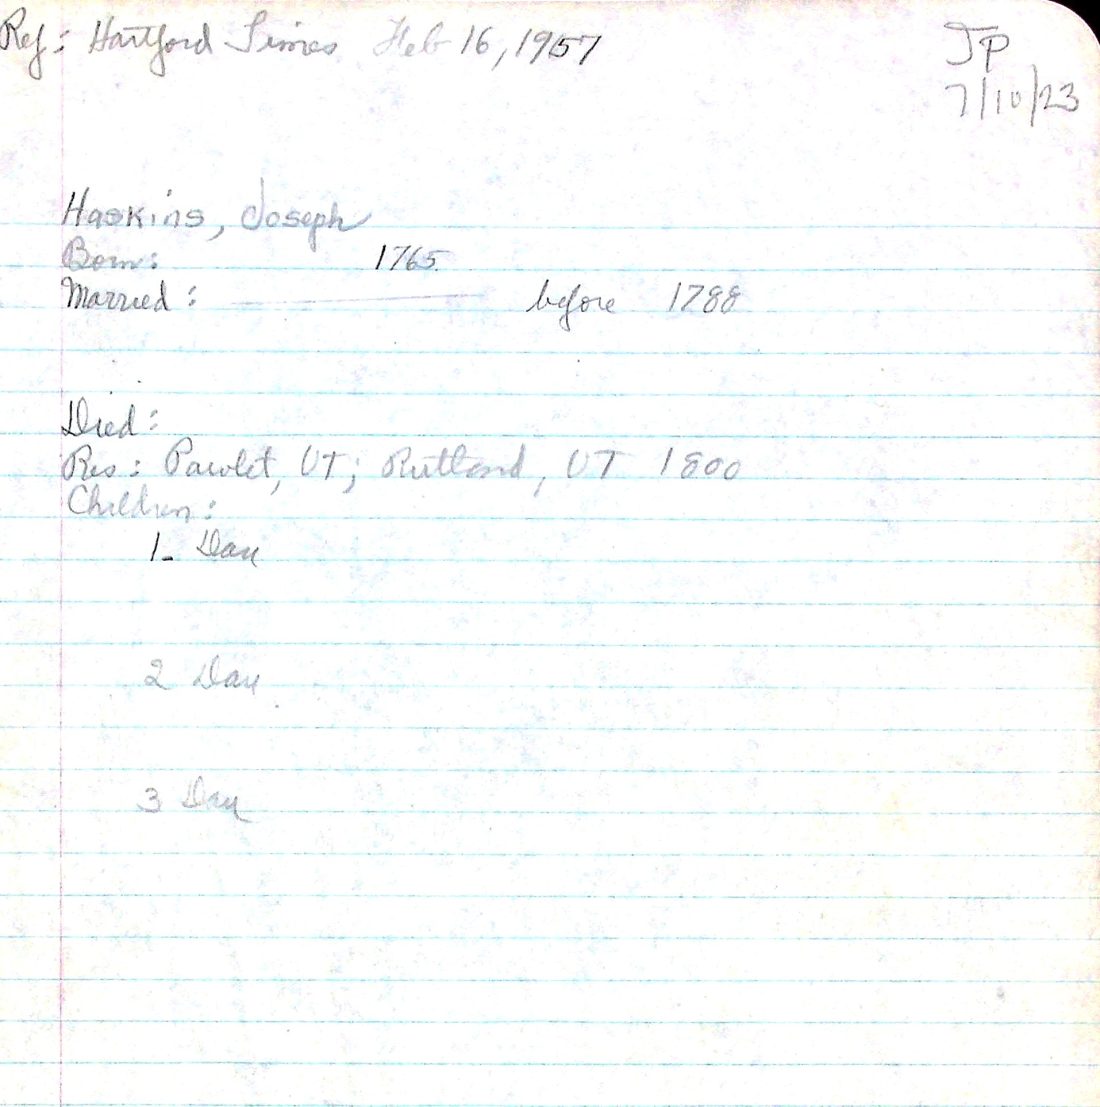 Ref: Hartford Times Feb 16, 1957
JP
7/10/23
Haskins, Joseph
Born: 1765
Married: ———— before 1788
Died:
Res: Pawlet, VT; Rutland, VT 1800
Children:
1- Dau
2 Dau
3 Dau